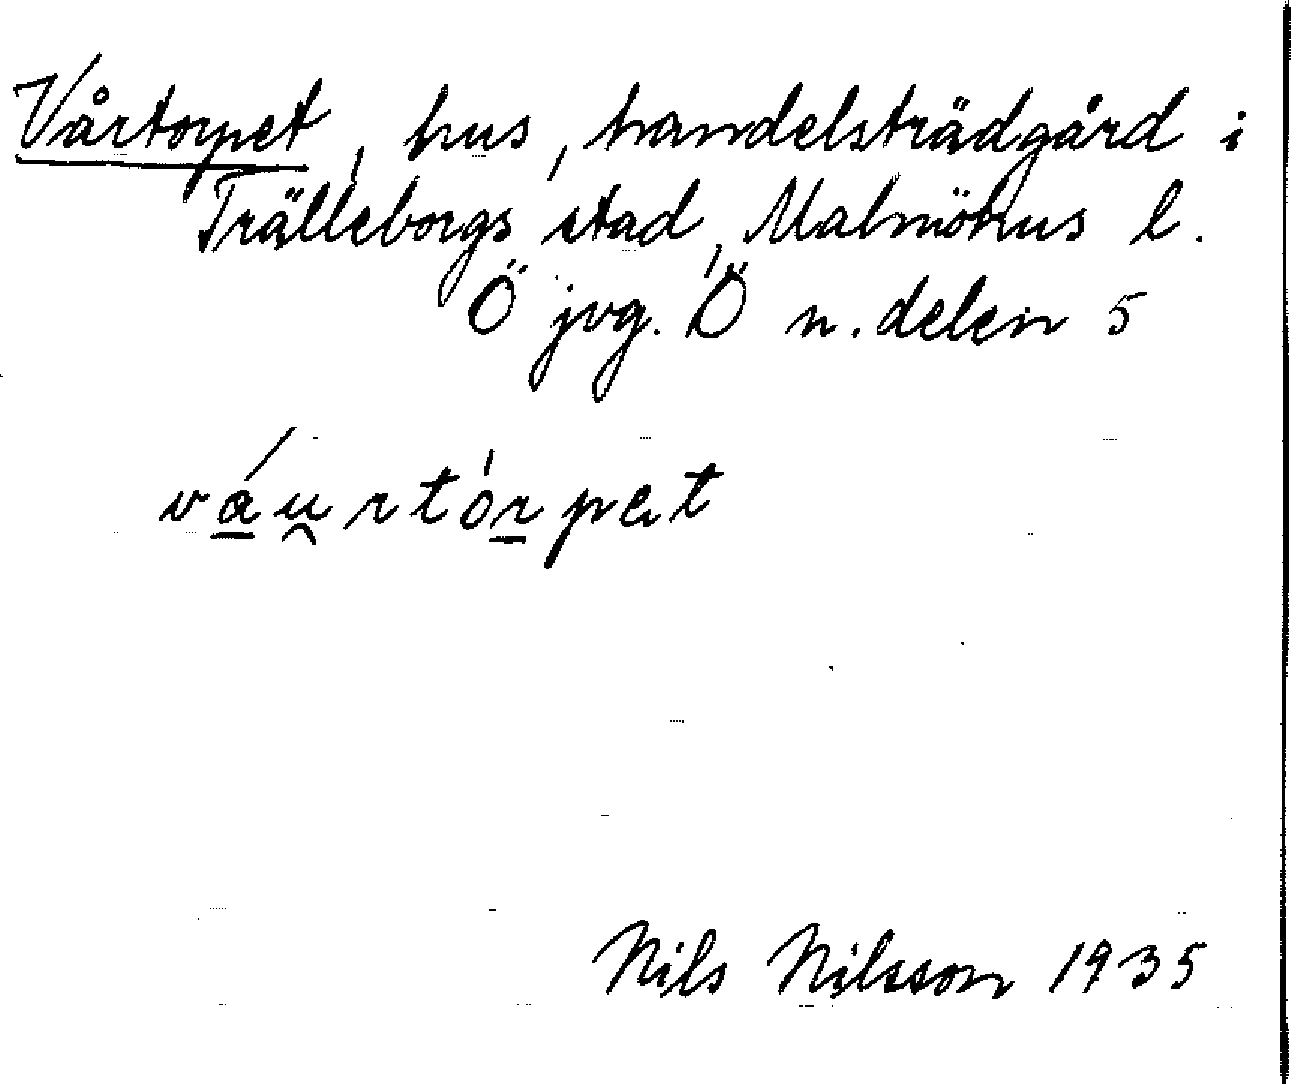 Vårtorpet, hus, handelsträdgård i
Trälleborgs stad, Malmöhus l.
Ö jvg. Ö n. delen 5
vá̱u̯rtóṟpet
Nils Nilsson 1935